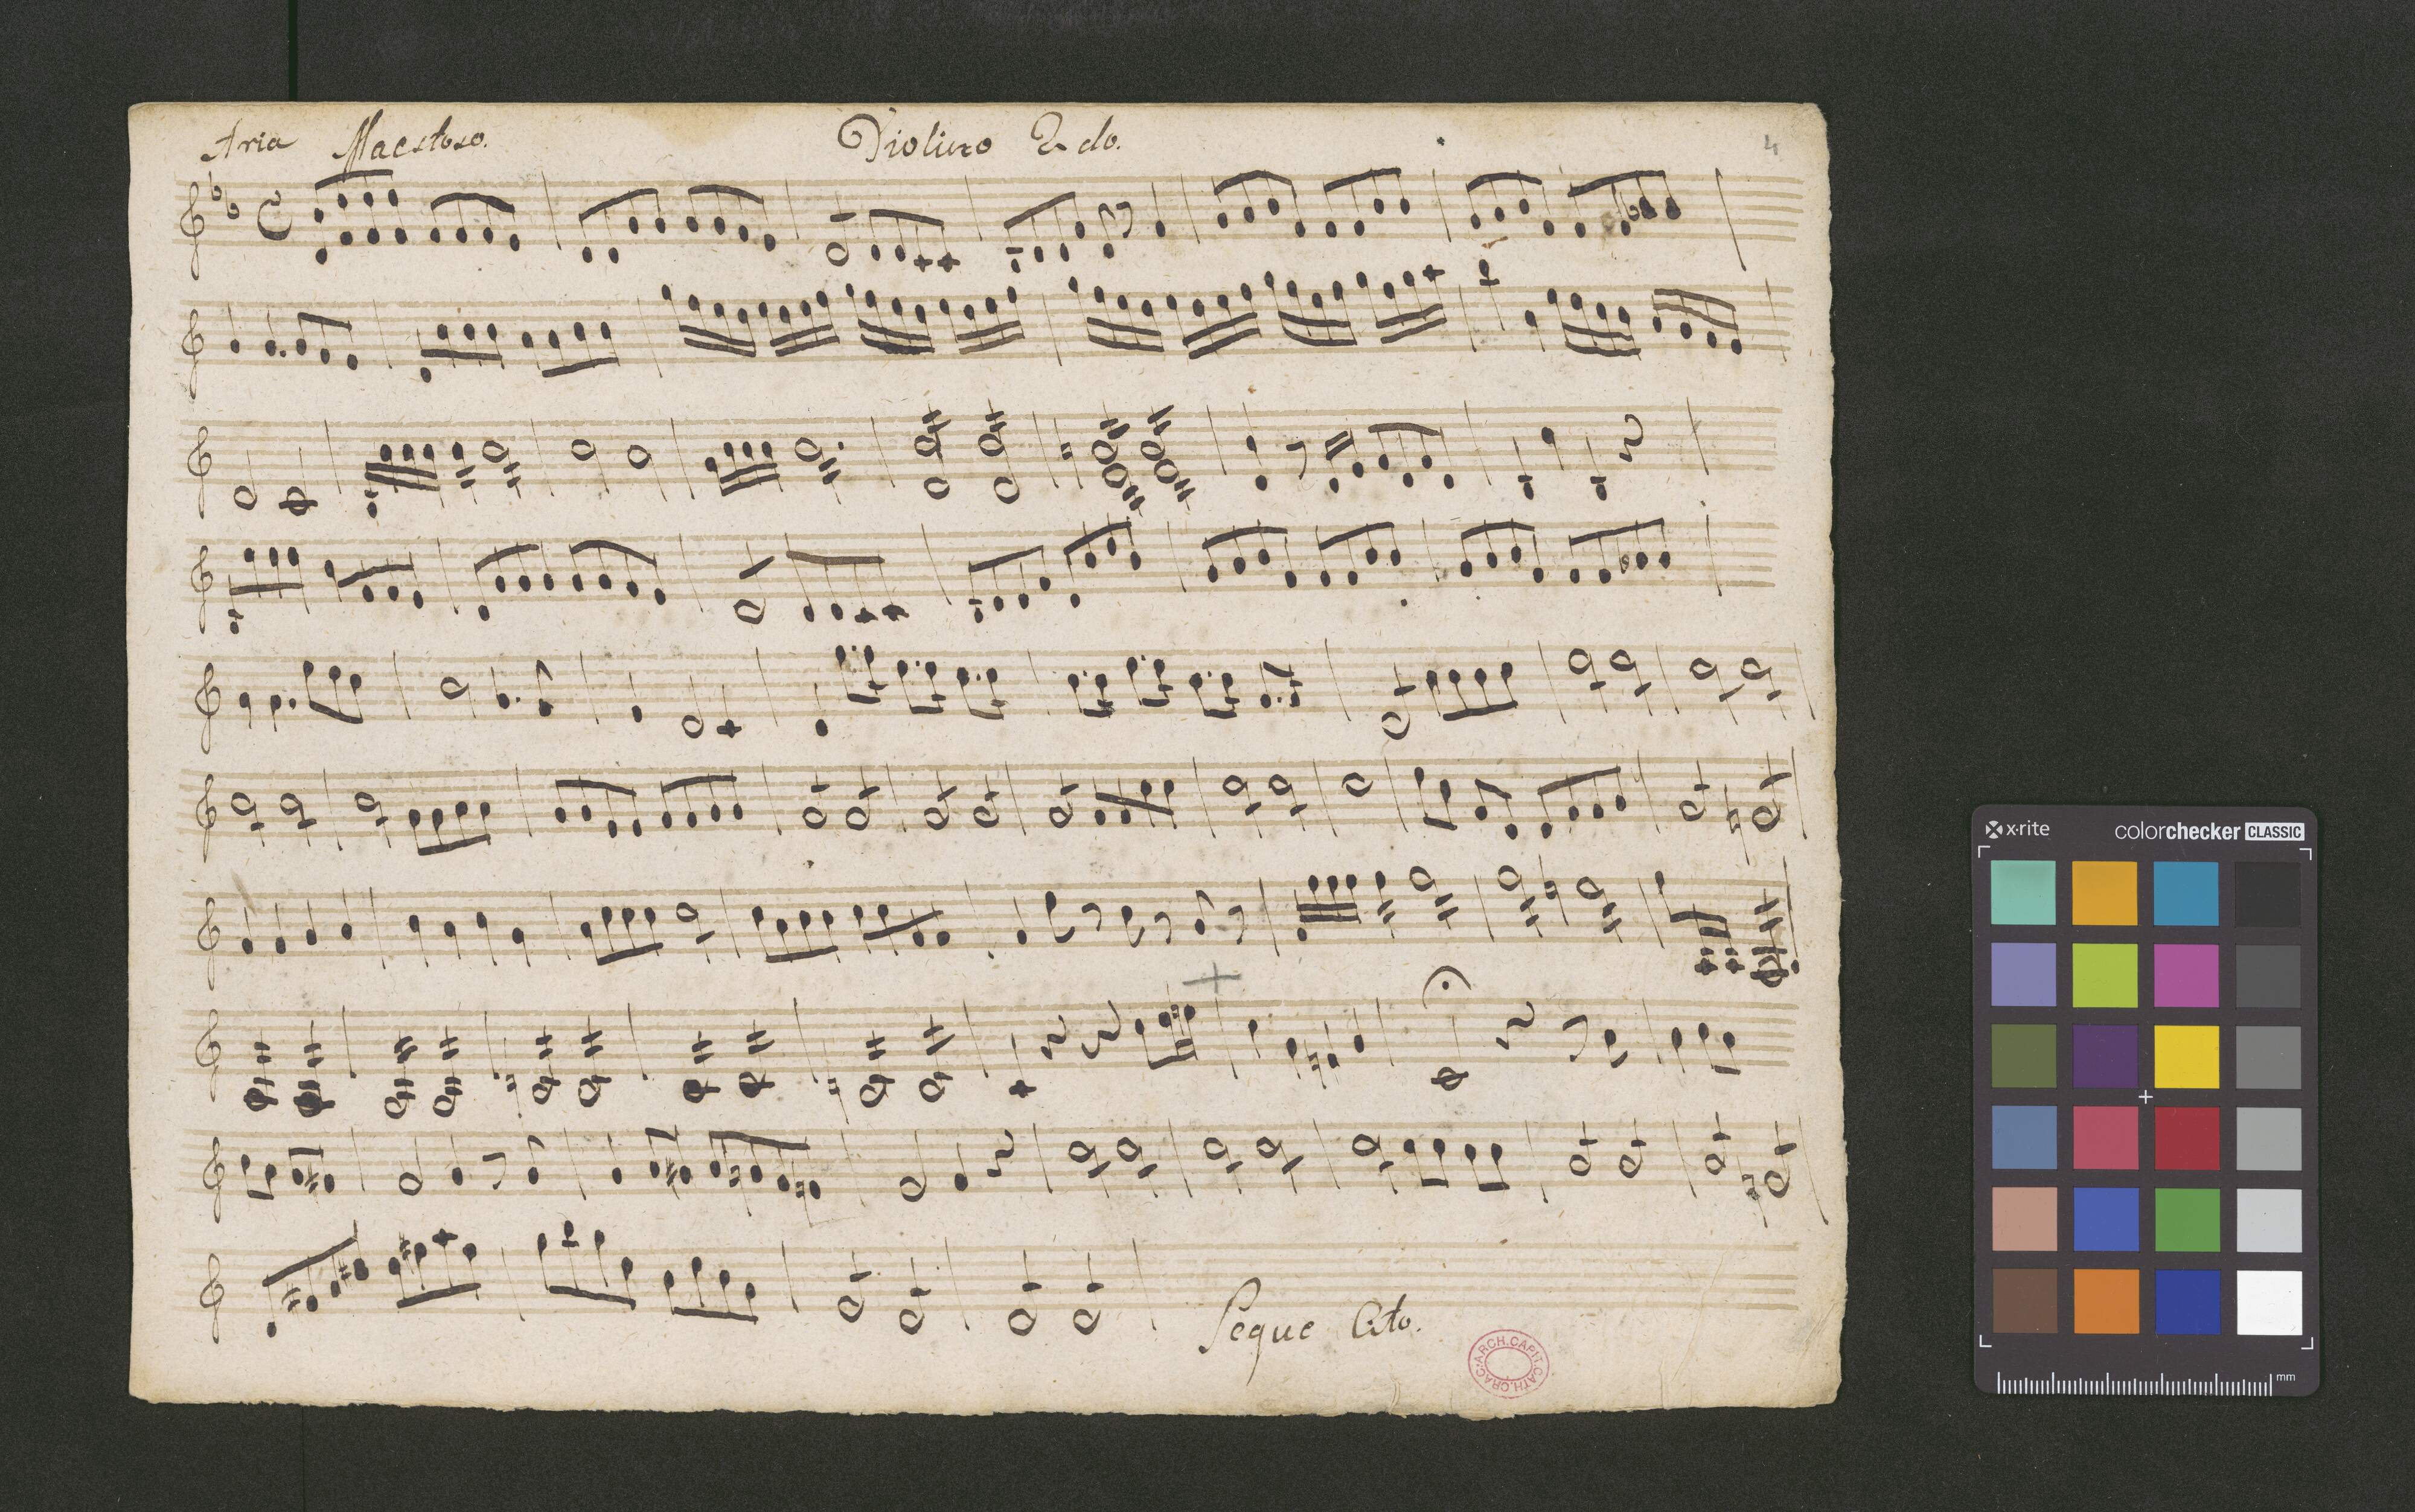 Aria Maestoso. Violino 2do. 4
Seque Cito.
ARCH.CAPIT.CATH.CRAC.
x·rite colorchecker CLASSIC
mm